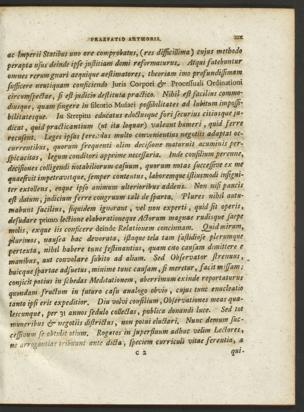 PRAEFATIO AVTHORIS.
ac Imperii Statibus uno ore comprobatus, (res difficillima) cujus methodo
perapta usus deinde ipse justitiam demi reformaturus. Atqui fatebuntur
omnes rerum gnari aequique aestimatores, theoriam imo profundissimam
sufficere neutiquam conficiendo Juris Corpori & Processuali Ordinationi
circumspectae, si est judicio destituta practico. Nihil est facilius commo-
diusque, quam fingere in silentio Musaei possibilitates ad lubitum impossi-
bilitatesque. In Strepitu educatus edoctusque fori securius citiusque ju-
dicat, quid practicantium (ut ita loquar) valeant humeri, quid ferre
recusent. Leges ipsas multo convenientius negotiis adaptat oc-
currentibus, quorum frequenti olim decisione maturuit acuminis per-
spicacitas, legum conditori apprime necessaria. Inde consilium perenne,
decisiones colligendi notabiliorum casuum, quorum notas successive ex me
quaesivit impetravitque, semper contentus, laboremque istiusmodi insigni-
ter extollens, eoque ipso animum ulterioribus addens. Non nisi paucis
est datum, judicium ferre congruum tali de structa. Plures nihil autu-
mabunt facilius, siquidem ignorant, vel non experti, quid sit operis,
desudare primo lectione elaborationeque Actorum magnae rudisque saepe
molis, exque iis conficere deinde Relationem concinnam. Quid mirum,
plurimos, nausea hac devorata, istoque tela tam fastidiose plerumque
pertexta, nihil habere tunc festinantius, quam cito causam dimittere e
manibus, aut convolare subito ad aliam. Sed Observator strenuus,
huicque spartae adsuetus, minime tunc causam, si meretur, facit missam;
conjicit potius in schedas Meditationem, uberrimum exinde reportaturus
quondam fructum in futuro casu analogo obvio, cujus tunc enucleatio
tanto ipsi erit expeditior. Diu volvi consilium, Observationes meas qua-
lescunque, per 31 annos sedulo collectas, publica donandi luce. Sed tot
muneribus & negotiis districtus, non potui eluctari. Nunc demum suc-
cessivum
arrogantiae tribuant ante dicta, speciem curriculi vitae ferentia, a
C 2
qui-